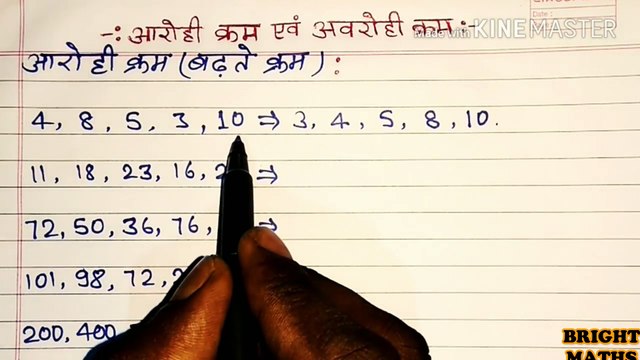 -: आरोही क्रम एवं अवरोही क्रम :-
Made with KINE MASTER
आरोही क्रम (बढ़ते क्रम) :
4, 8, 5, 3, 10 ⇒ 3, 4, 5, 8, 10.
11, 18, 23, 16, ⇒
72, 50, 36, 76, ⇒
101, 98, 72,
200, 400
BRIGHT
MATHS